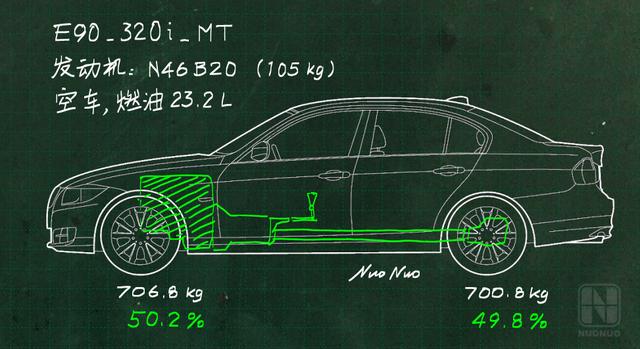 E90_320i_MT
发动机: N46B20 (105kg)
空车,燃油23.2L
NuoNuo
706.8kg
700.8kg
50.2%
49.8%
NUONUO